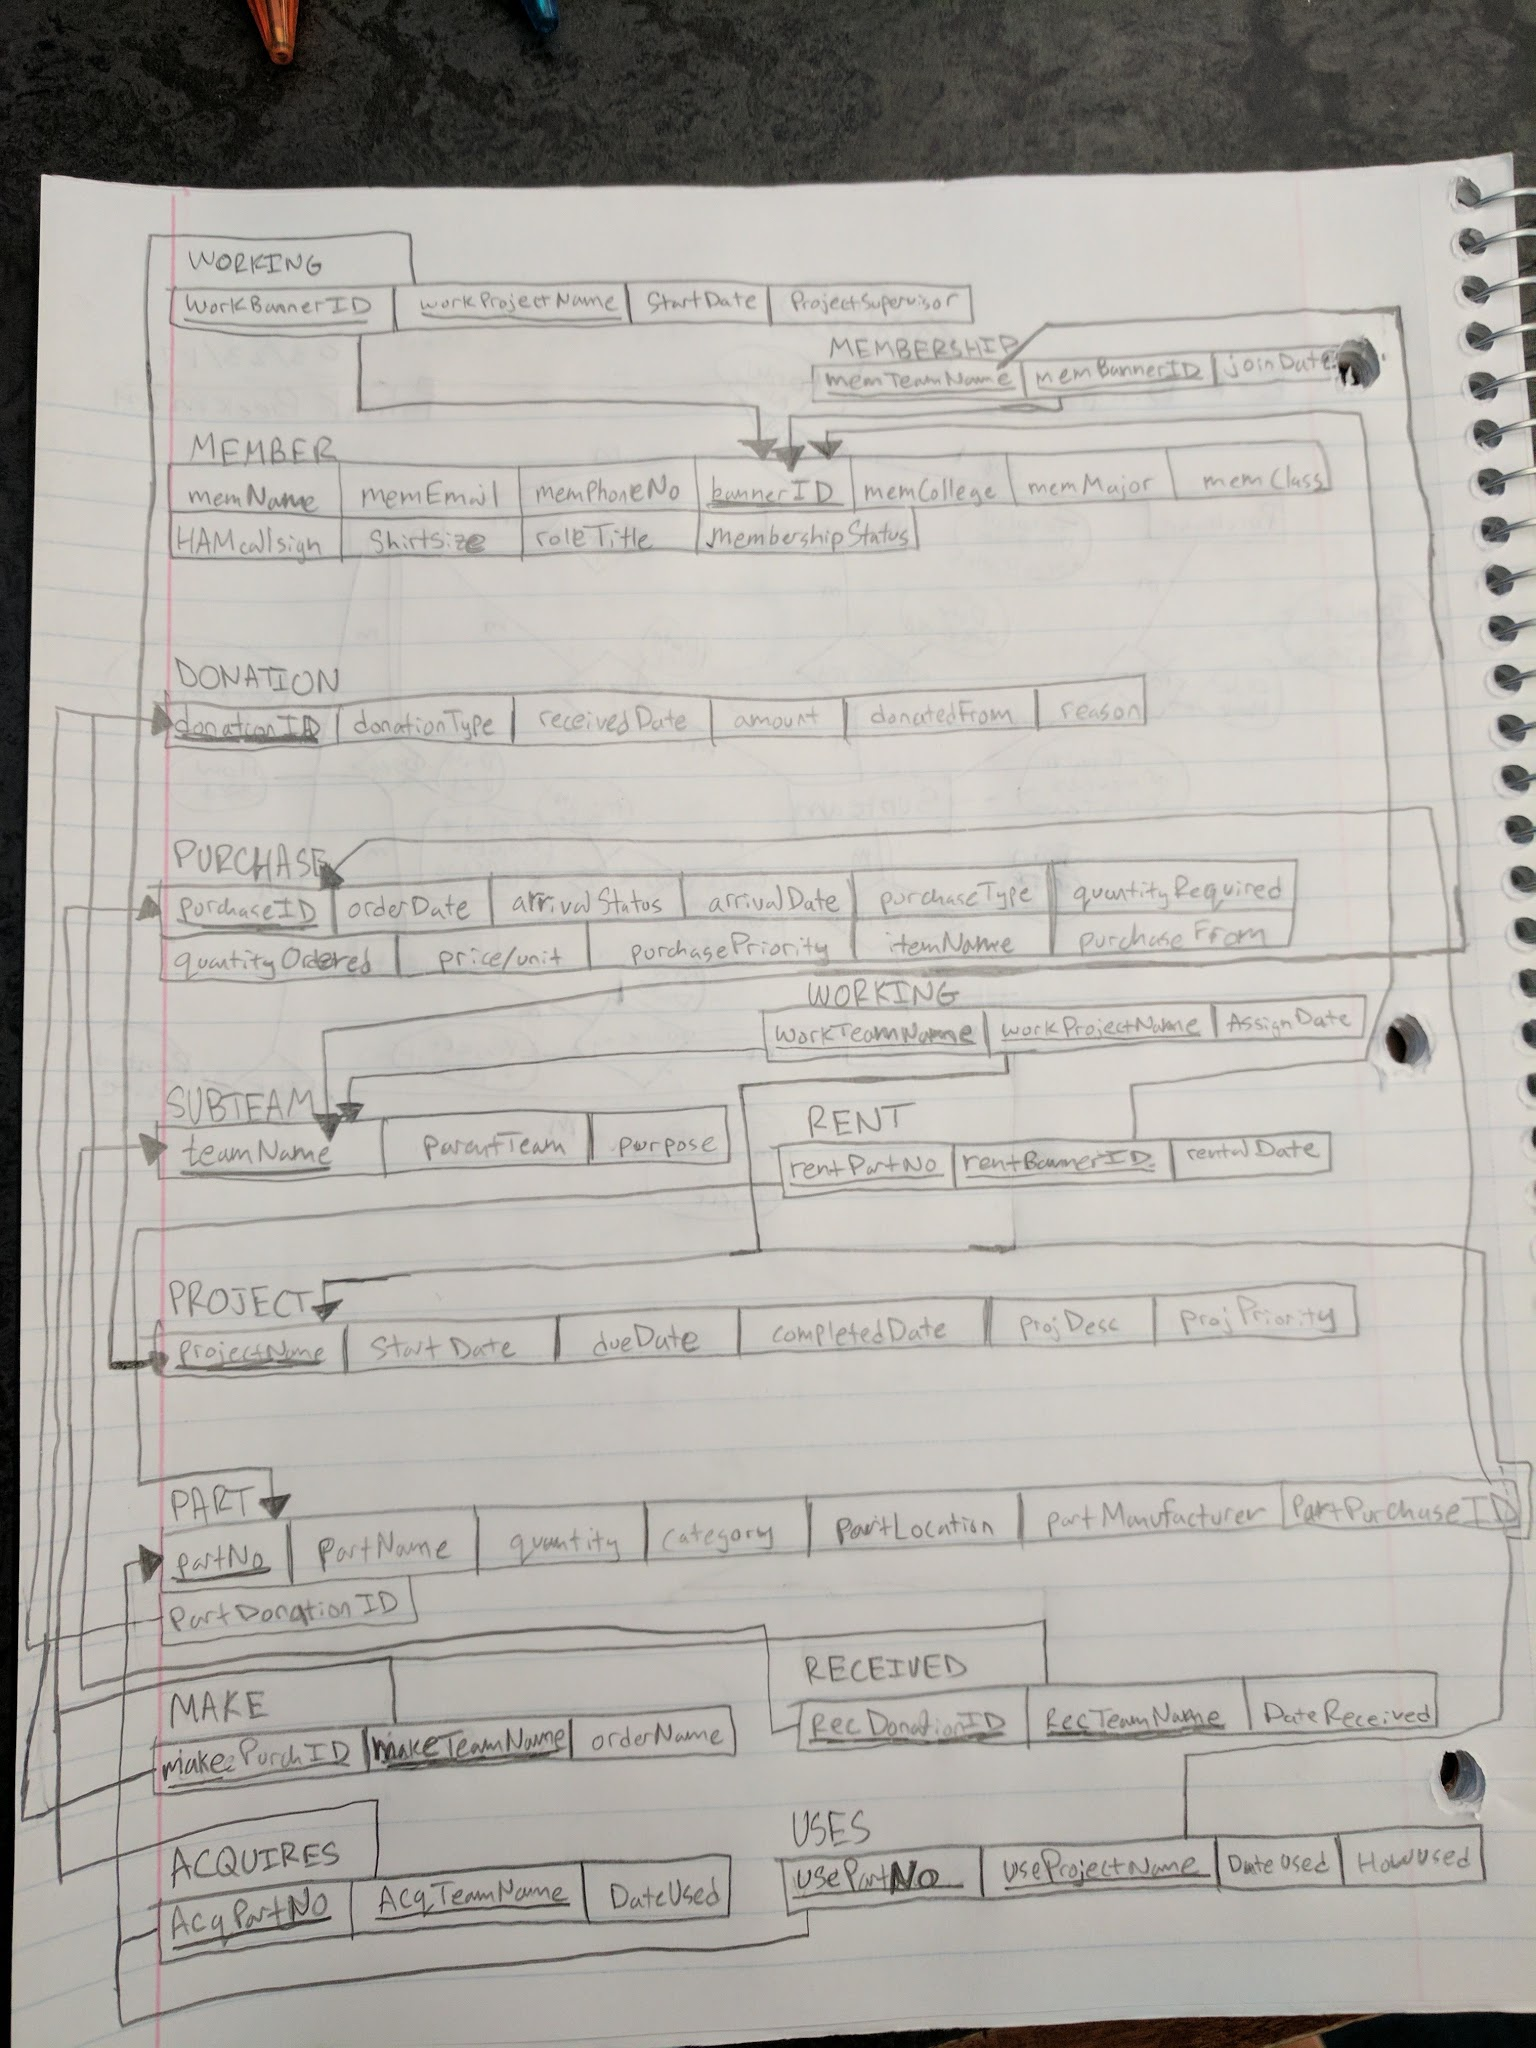 WORKING
WorkBannerID workProjectName StartDate ProjectSupervisor
MEMBERSHIP
memTeamName memBannerID joinDate
MEMBER
memName memEmail memPhoneNo bannerID memCollege memMajor memClass
HAMcallsign ShirtSize roleTitle membershipStatus
DONATION
donationID donationType receivedDate amount donatedFrom reason
PURCHASE
purchaseID orderDate arrivalStatus arrivalDate purchaseType quantityRequired
quantityOrdered price/unit purchasePriority itemName purchaseFrom
WORKING
workTeamName workProjectName AssignDate
SUBTEAM
teamName parentTeam purpose
RENT
rentPartNo rentBannerID rentalDate
PROJECT
projectName StartDate dueDate completedDate projDesc projPriority
PART
partNo partName quantity category partLocation partManufacturer PartPurchaseID
PartDonationID
RECEIVED
RecDonationID RecTeamName DateReceived
MAKE
makePurchID makeTeamName orderName
USES
usePartNo useProjectName DateUsed HowUsed
ACQUIRES
AcqPartNo AcqTeamName DateUsed